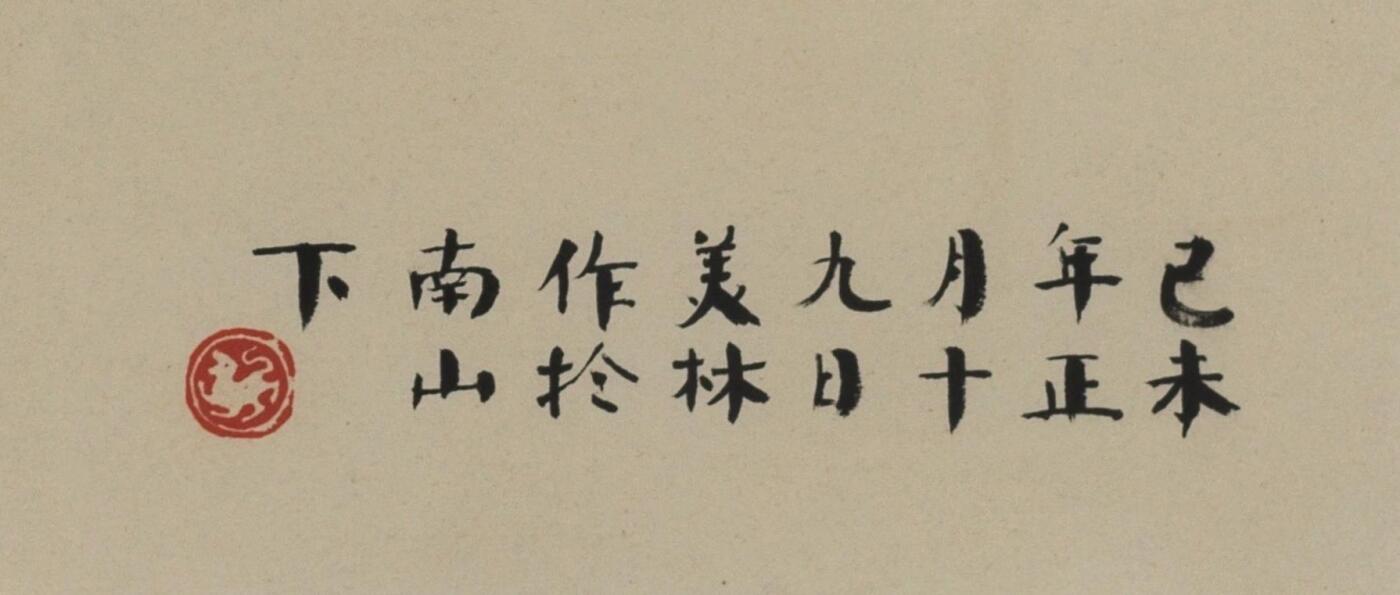 己未
年正
月十
九日
美林
作於
南山
下